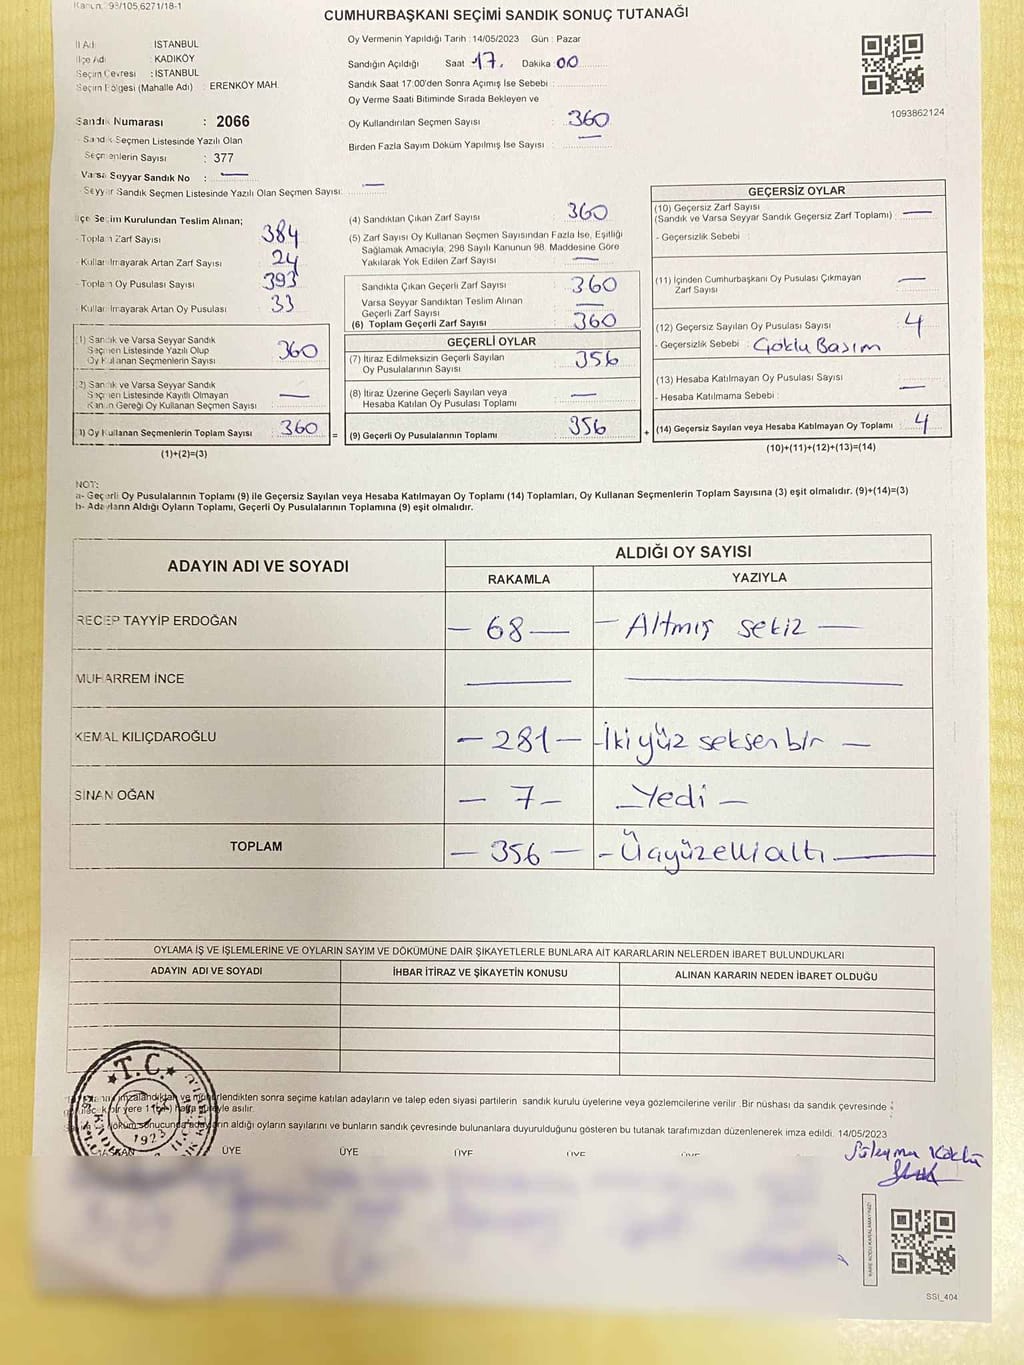 98/105,6271/18-1
CUMHURBAŞKANI SEÇİMİ SANDIK SONUÇ TUTANAĞI
İl Adı : İSTANBUL
İlçe Adı : KADIKÖY
Seçim Çevresi : İSTANBUL
Seçim Bölgesi (Mahalle Adı) : ERENKÖY MAH.
Sandık Numarası : 2066
Sandık Seçmen Listesinde Yazılı Olan
Seçmenlerin Sayısı : 377
Varsa Seyyar Sandık No : —
Seyyar Sandık Seçmen Listesinde Yazılı Olan Seçmen Sayısı: —
Oy Vermenin Yapıldığı Tarih : 14/05/2023 Gün : Pazar
Sandığın Açıldığı Saat 17. Dakika 00
Sandık Saat 17:00'den Sonra Açımış İse Sebebi :
Oy Verme Saati Bitiminde Sırada Bekleyen ve
Oy Kullandırılan Seçmen Sayısı : 360
Birden Fazla Sayım Döküm Yapılmış İse Sayısı : —
1093862124
İlçe Seçim Kurulundan Teslim Alınan;
- Toplam Zarf Sayısı 384
- Kullanılmayarak Artan Zarf Sayısı 24
- Toplam Oy Pusulası Sayısı 393
- Kullanılmayarak Artan Oy Pusulası 33
(1) Sandık ve Varsa Seyyar Sandık
Seçmen Listesinde Yazılı Olup
Oy Kullanan Seçmenlerin Sayısı 360
(2) Sandık ve Varsa Seyyar Sandık
Seçmen Listesinde Kayıtlı Olmayan
Kanun Gereği Oy Kullanan Seçmen Sayısı —
(3) Oy Kullanan Seçmenlerin Toplam Sayısı 360
(1)+(2)=(3)
(4) Sandıktan Çıkan Zarf Sayısı 360
(5) Zarf Sayısı Oy Kullanan Seçmen Sayısından Fazla İse, Eşitliği
Sağlamak Amacıyla, 298 Sayılı Kanunun 98. Maddesine Göre
Yakılarak Yok Edilen Zarf Sayısı —
Sandıkta Çıkan Geçerli Zarf Sayısı 360
Varsa Seyyar Sandıktan Teslim Alınan
Geçerli Zarf Sayısı —
(6) Toplam Geçerli Zarf Sayısı 360
GEÇERLİ OYLAR
(7) İtiraz Edilmeksizin Geçerli Sayılan
Oy Pusulalarının Sayısı 356
(8) İtiraz Üzerine Geçerli Sayılan veya
Hesaba Katılan Oy Pusulası Toplamı —
= (9) Geçerli Oy Pusulalarının Toplamı 356
GEÇERSİZ OYLAR
(10) Geçersiz Zarf Sayısı
(Sandık ve Varsa Seyyar Sandık Geçersiz Zarf Toplamı) : —
- Geçersizlik Sebebi :
(11) İçinden Cumhurbaşkanı Oy Pusulası Çıkmayan
Zarf Sayısı —
(12) Geçersiz Sayılan Oy Pusulası Sayısı : 4
- Geçersizlik Sebebi : Çoklu Basım
(13) Hesaba Katılmayan Oy Pusulası Sayısı : —
- Hesaba Katılmama Sebebi :
+ (14) Geçersiz Sayılan veya Hesaba Katılmayan Oy Toplamı : 4
(10)+(11)+(12)+(13)=(14)
NOT:
a- Geçerli Oy Pusulalarının Toplamı (9) ile Geçersiz Sayılan veya Hesaba Katılmayan Oy Toplamı (14) Toplamları, Oy Kullanan Seçmenlerin Toplam Sayısına (3) eşit olmalıdır. (9)+(14)=(3)
b- Adayların Aldığı Oyların Toplamı, Geçerli Oy Pusulalarının Toplamına (9) eşit olmalıdır.
ADAYIN ADI VE SOYADI ALDIĞI OY SAYISI
RAKAMLA YAZIYLA
RECEP TAYYİP ERDOĞAN — 68 — — Altmış sekiz —
MUHARREM İNCE — —
KEMAL KILIÇDAROĞLU — 281 — - İki yüz seksen bir —
SİNAN OĞAN — 7 — — Yedi —
TOPLAM — 356 — - Üçyüzelli altı —
OYLAMA İŞ VE İŞLEMLERİNE VE OYLARIN SAYIM VE DÖKÜMÜNE DAİR ŞİKAYETLERLE BUNLARA AİT KARARLARIN NELERDEN İBARET BULUNDUKLARI
ADAYIN ADI VE SOYADI İHBAR İTİRAZ VE ŞİKAYETİN KONUSU ALINAN KARARIN NEDEN İBARET OLDUĞU
T.C.
1923
imzalandıktan ve mühürlendikten sonra seçime katılan adayların ve talep eden siyasi partilerin sandık kurulu üyelerine veya gözlemcilerine verilir. Bir nüshası da sandık çevresinde
bir yere 1 hafta süreyle asılır.
döküm sonucunda adayların aldığı oyların sayılarını ve bunların sandık çevresinde bulunanlara duyurulduğunu gösteren bu tutanak tarafımızdan düzenlenerek imza edildi. 14/05/2023
BAŞKAN ÜYE ÜYE ÜYE ÜYE ÜYE
KARE KODU KARALAMAYINIZ!
SSI_404